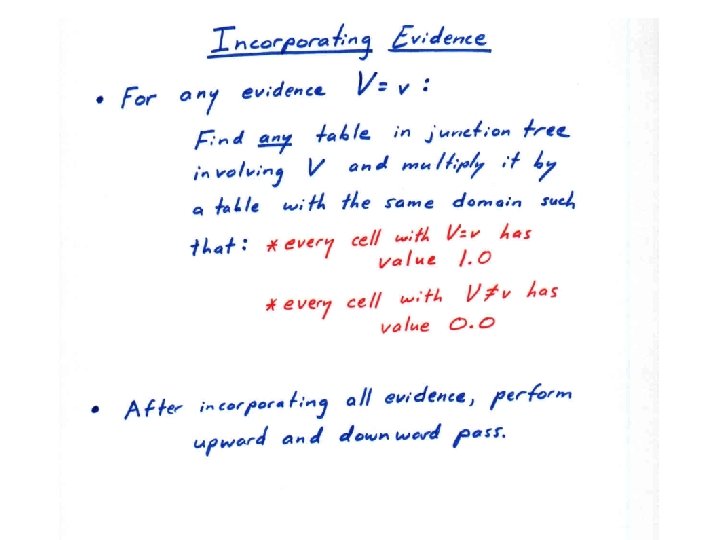 Incorporating Evidence
• For any evidence V=v:
Find any table in junction tree
involving V and multiply it by
a table with the same domain such
that: * every cell with V=v has
value 1.0
* every cell with V≠v has
value 0.0
• After incorporating all evidence, perform
upward and downward pass.